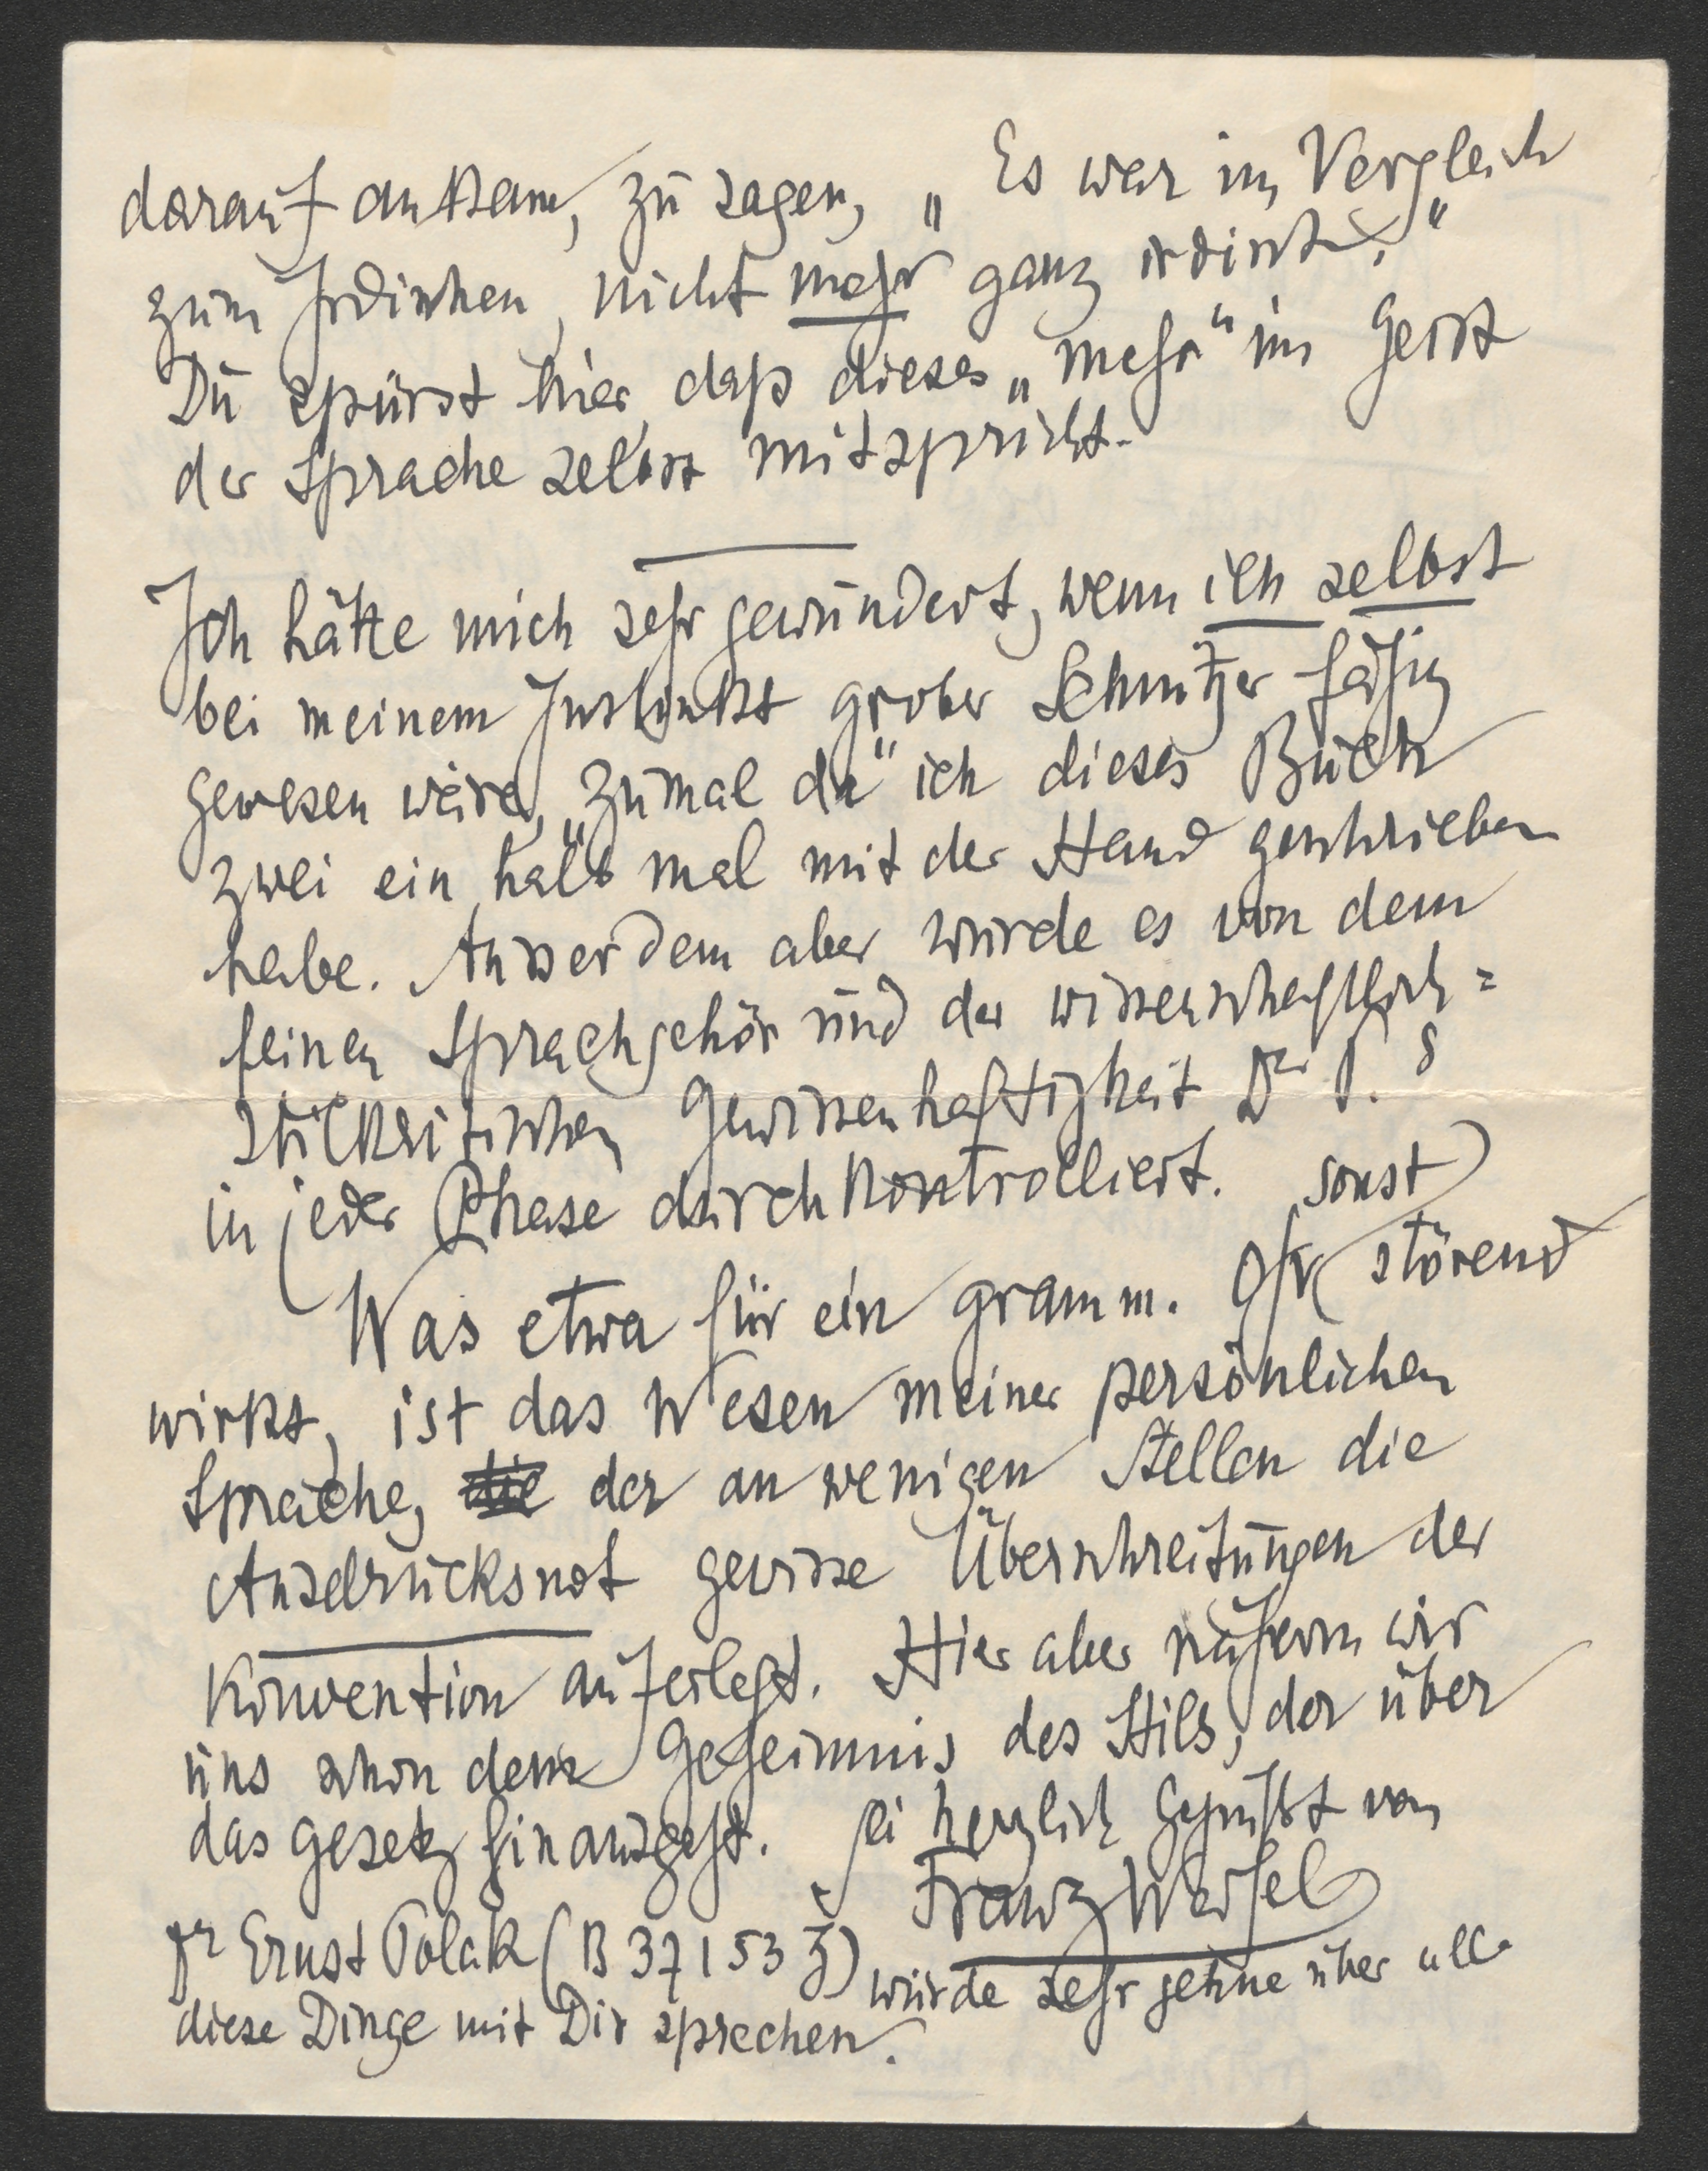 darauf ankam, zu sagen, „Es war im Vergleich
zum Irdischen, nicht mehr ganz irdisch."
Du spürst hier, daß dieses „mehr" im Geist
der Sprache selbst mitspricht.
Ich hätte mich sehr gewundert, wenn ich selbst
bei meinem Instinkt grober Schnitzer fähig
gewesen wäre, „zumal da" ich dieses Buch
zwei ein halb mal mit der Hand geschrieben
habe. Ausserdem aber wurde es von dem
feinen Sprachgehör und der wissenschaftlich=
stilkritischen Gewissenhaftigkeit Dr P.s
in jeder Phase durchkontrolliert.
Was etwa für ein gramm. Ohr sonst störend
wirkt, ist das Wesen meiner persönlichen
Sprache, die der an wenigen Stellen die
Ausdrucksnot gewisse Überschreitungen der
Konvention auferlegt. Hier aber nähern wir
uns schon dem Geheimnis des Stils, der über
das Gesetz hinausgeht. Sei herzlich gegrüßt von
Franz Werfel
Dr Ernst Polak (B 37153 Z) würde sehr gerne über alle
diese Dinge mit Dir sprechen.